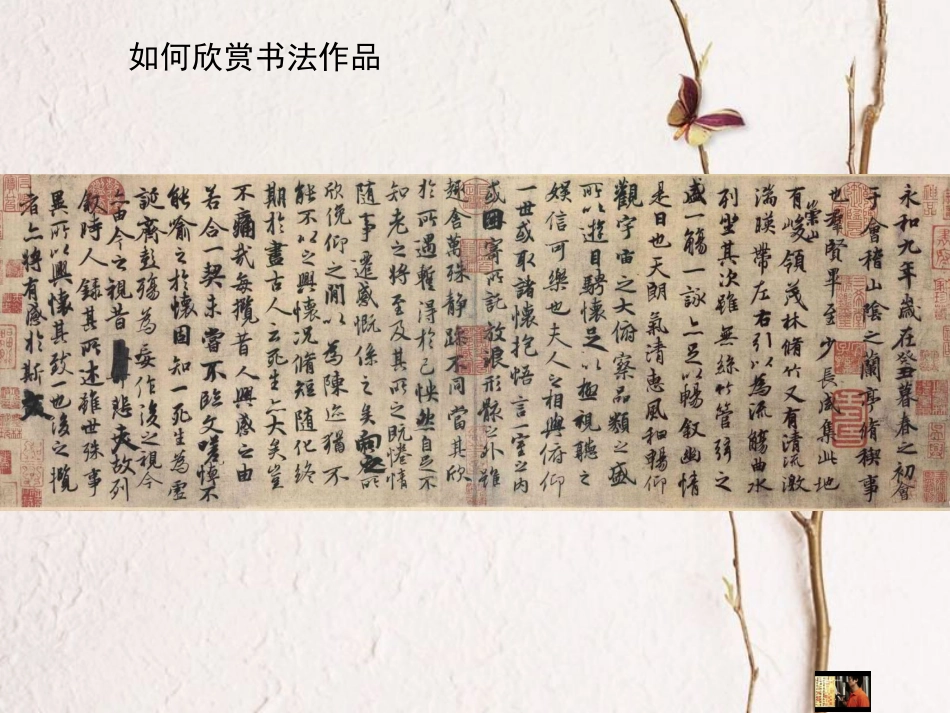 如何欣赏书法作品
永和九年歲在癸丑暮春之初會
于會稽山陰之蘭亭脩稧事
也羣賢畢至少長咸集此地
有崇山峻領茂林脩竹又有清流激
湍暎帶左右引以為流觴曲水
列坐其次雖無絲竹管弦之
盛一觴一詠亦足以暢叙幽情
是日也天朗氣清惠風和暢仰
觀宇宙之大俯察品類之盛
所以遊目騁懷足以極視聽之
娛信可樂也夫人之相與俯仰
一世或取諸懷抱悟言一室之內
或因寄所託放浪形骸之外雖
趣舍萬殊靜躁不同當其欣
於所遇暫得於己怏然自足不
知老之將至及其所之既惓情
隨事遷感慨係之矣向之所
欣俛仰之閒以為陳迹猶不
能不以之興懷況脩短隨化終
期於盡古人云死生亦大矣豈
不痛哉每攬昔人興感之由
若合一契未嘗不臨文嗟悼不
能喻之於懷固知一死生為虛
誕齊彭殤為妄作後之視今
亦由今之視昔悲夫故列
叙時人錄其所述雖世殊事
異所以興懷其致一也後之攬
者亦將有感於斯文